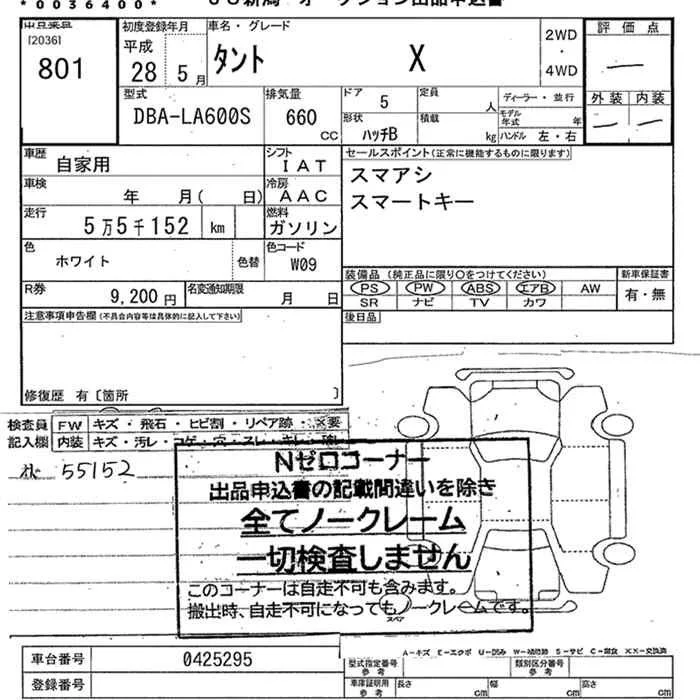 *0036400*
オークション出品申込書
[2036]
801
初度登録年月
平成
28 5月
車名・グレード
タント X
2WD
・
4WD
評価点
外装 内装
型式
DBA-LA600S
排気量
660
CC
ドア 5
定員 人
ディーラー・並行
形状
ハッチB
積載
kg
モデル年式 年
ハンドル 左・右
車歴
自家用
シフト
IAT
セールスポイント(正常に機能するものに限ります)
スマアシ
スマートキー
車検
年 月( 日)
冷房
AAC
走行
5万5千152 km
燃料
ガソリン
色
ホワイト
色替
色コード
W09
装備品 (純正品に限り○をつけてください)
新車保証書
PS PW ABS エアB AW
SR ナビ TV カワ
有・無
R券
9,200円
名変通知期限
月 日
注意事項申告欄(不具合内容等は具体的に記入して下さい)
後日品
修復歴 有〔箇所 〕
検査員
記入欄
FW キズ・飛石・ヒビ割・リペア跡・×要
内装 キズ・汚レ・コゲ・穴・スレ・キレ・
55152
Nゼロコーナー
出品申込書の記載間違いを除き
全てノークレーム
一切検査しません
このコーナーは自走不可も含みます。
搬出時、自走不可になってもノークレームです。
スペア
A-キズ E-エクボ U-凹み W-補修跡 S-サビ C-腐食 XX-交換済
車台番号
0425295
登録番号
型式指定番号
参考
類別区分番号
参考
車庫証明用
参考
長さ cm
幅 cm
高さ cm